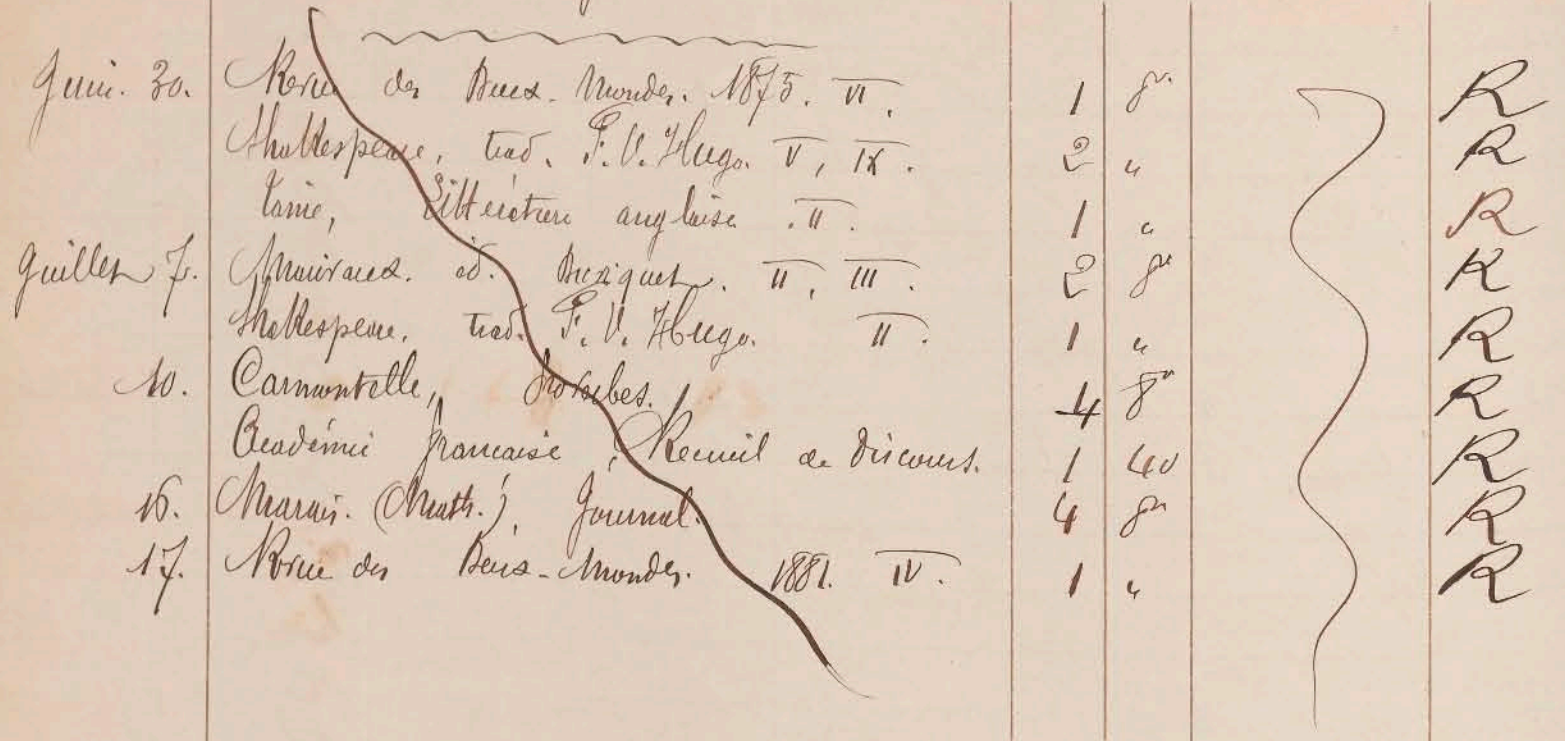 Juin. 30. Revue des Deux-Mondes. 1875. VI. 1 8º R
Shakespeare, trad. F. V. Hugo. V, IX. 2 " R
Taine, Littérature anglaise. II. 1 " R
Juillet 7. Marivaux. éd. Duviquet. II, III. 2 8º R
Shakespeare, trad. F. V. Hugo. II. 1 " R
10. Carmontelle, Proverbes. 4 8º R
Académie française, Recueil de Discours. 1 4º R
16. Marais. (Math.), Journal. 4 8º R
17. Revue des Deux-Mondes. 1881. IV. 1 " R